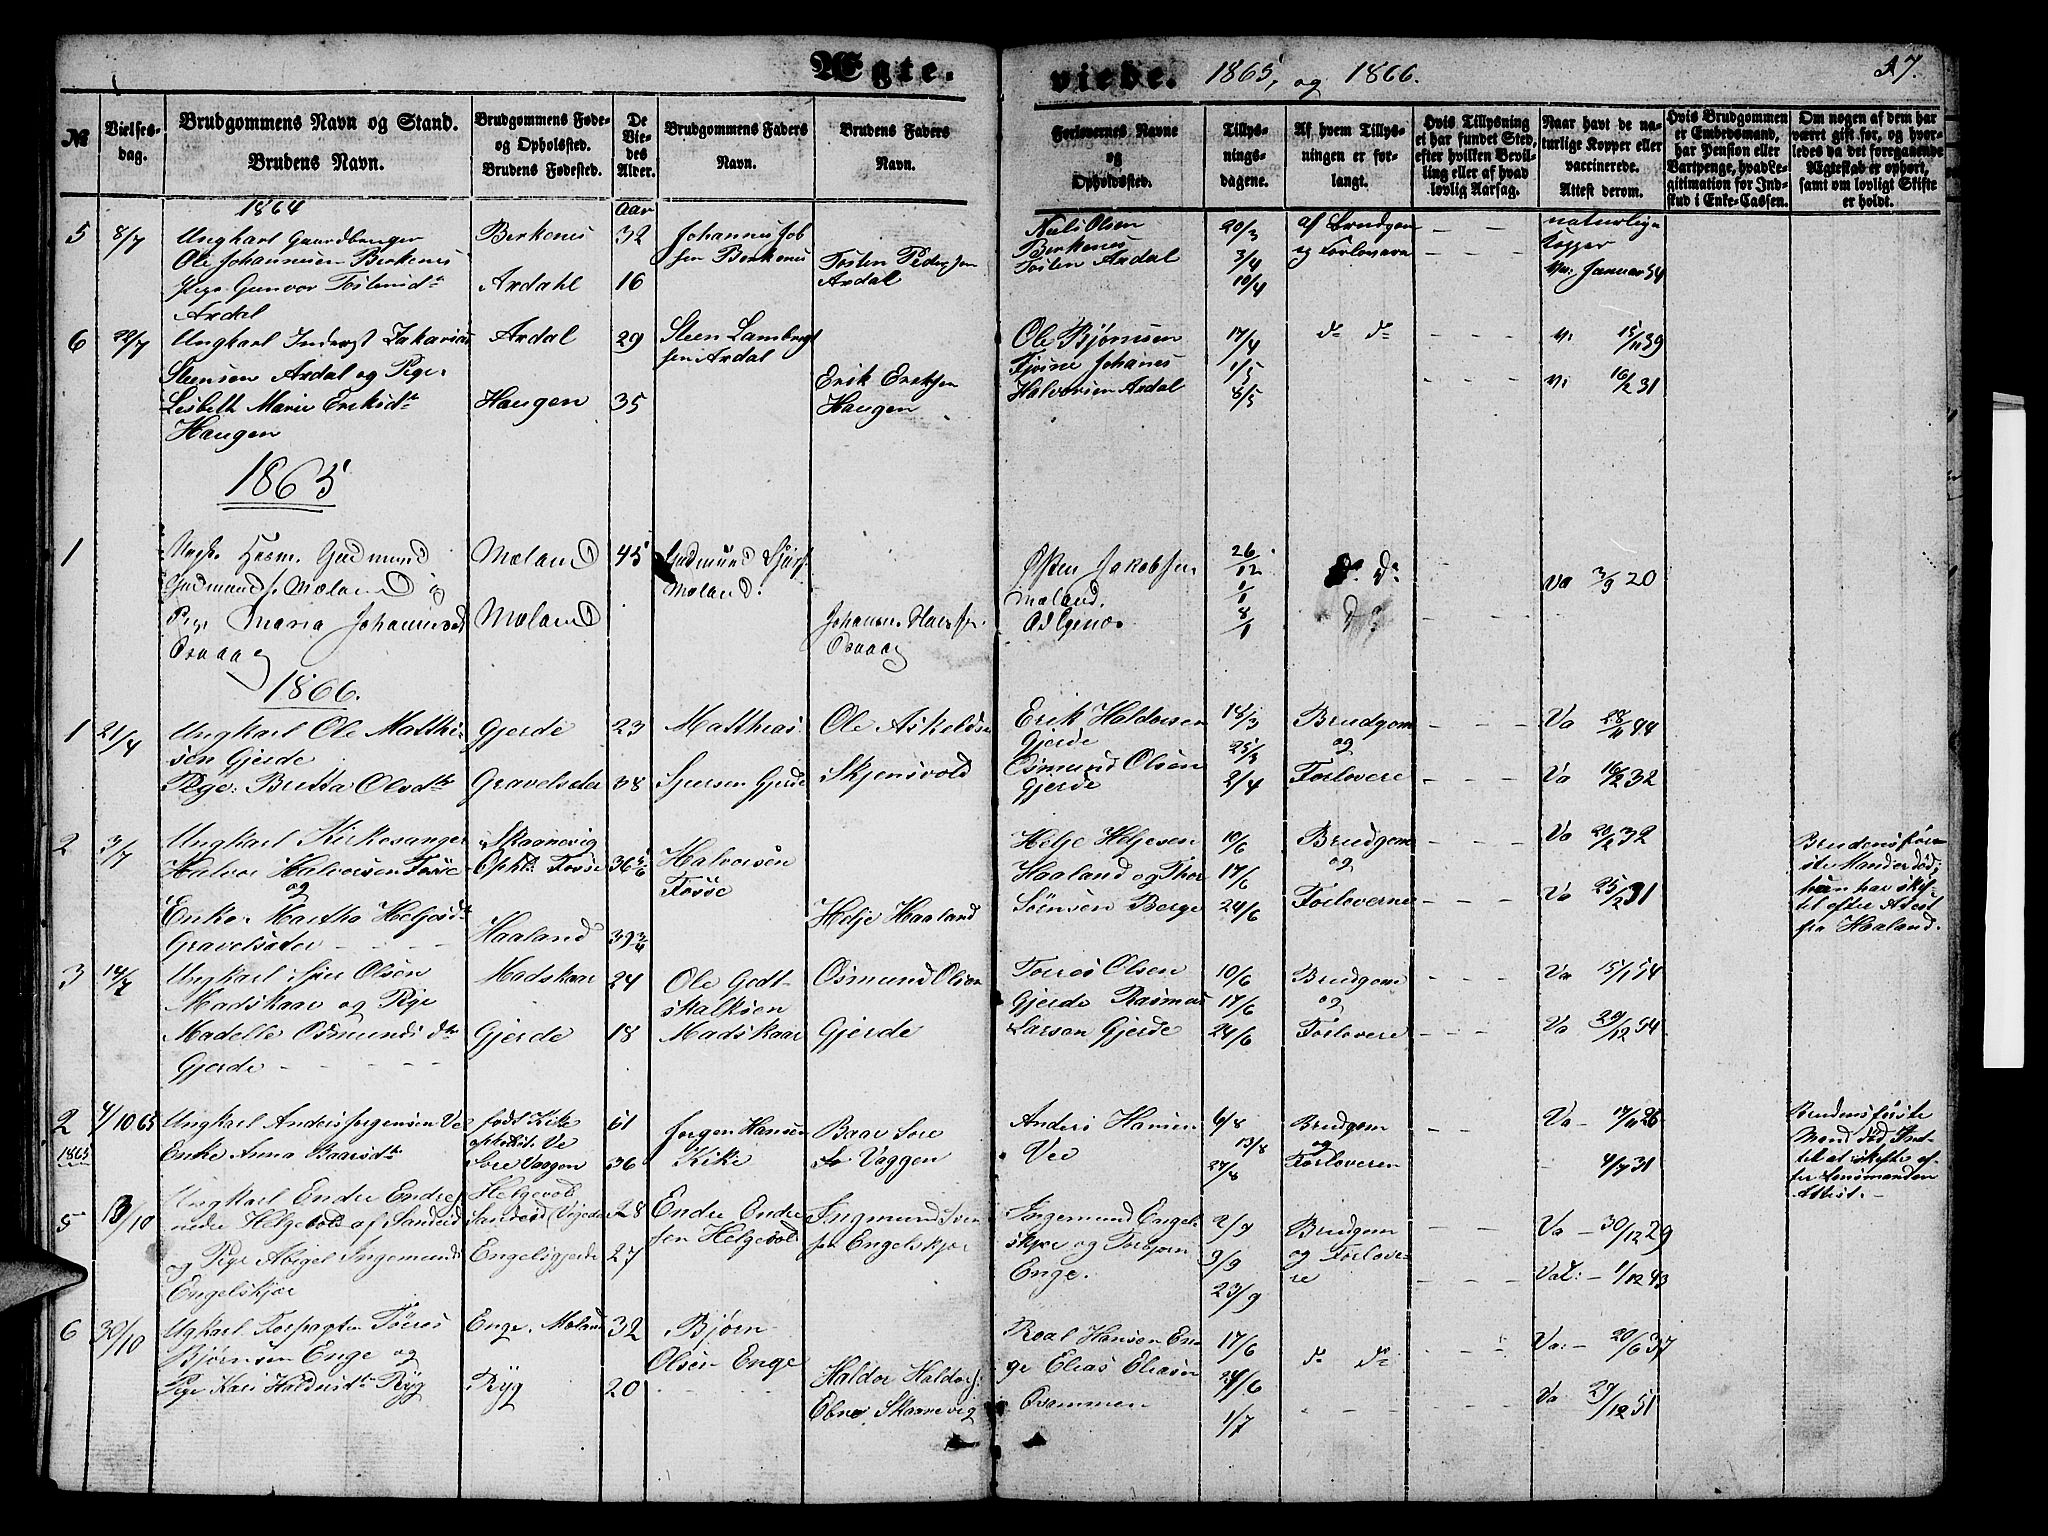 Ægte.
viede. 1865, og 1866.
37.
No
Vielses-
dag.
Brudgommens Navn og Stand.
Brudens Navn.
Brudgommens Føde-
og Opholdssted.
Brudens Fødested.
De
Vie-
des
Alder.
Brudgommens Faders
Navn.
Brudens Faders
Navn.
Forlovernes Navne
og
Opholdssted.
Tillys-
nings-
dagene.
Af hvem Tillys-
ningen er for-
langt.
Hvis Tillysning
ei har fundet Sted,
efter hvilken Bevil-
ling eller af hvad
lovlig Aarsag.
Naar havt de na-
turlige Kopper eller
vaccinerede.
Attest derom.
Hvis Brudgommen
er Embedsmand,
har Pension eller
Vartpenge, hvad Le-
gitimation for Ind-
skud i Enke-Cassen.
Om nogen af dem har
været gift før, og hvor-
ledes da det foregaaende
Ægteskab er ophørt,
samt om lovligt Skifte
er holdt.
1864
Aar
5 8/7
Ungkarl Gaardbruger
Ole Johannesen Berkenes
Pige Gunvor Tostensdtr
Ardal
Berkenes
Ardahl
32
16
Johannes Job
sen Berkenes
Tosten Peder sen
Ardal
Niels Olsen
Berkenes
Tosten Ardal
20/3
3/4
10/4
af Brudgom
og Forlovern
naturlige
Kopper
Va: Januar 54
6 22/7
Ungkarl Inderst Zakarias
Steensen Ardal og Pige
Lisbeth Marie Eriksdtr
Haugen
Ardal
Haugen
29
35
Steen Lambregt
sen Ardal
Erik Eriksen
Haugen
Ole Bjørnsen
Johanes
Halvorsen Ardal
17/4
1/5
8/5
do do
v: 15/11 39
v: 16/2 31
1865
1
Gudmund
Gudmunds. Mæland og
Pige Maria Johannesd
Osaag
Mæland
Mæland
45
Gudmund
Mæland.
Johannes
Osaag
Østen Jakobsen
Mæland.
26/12
1/1
8/1
do do
do
va 3/9 20
1866.
1 21/4
Ungkarl Ole Matthi-
sen Gjerde
Pige: Britta Olsdtr
Gjerde
Gravelsæter
23
38
Matthias
Sjursen Gjerde
Ole Askelds
Skjensvold
Erik Haldorsen
Gjerde
Osmund Olsen
Gjerde
18/3
25/3
2/4
Brudgom
og
Forlovere
Va 28/11 44
Va 16/2 32
2 3/7
Ungkarl Kirkesanger
Halvor Halvorsen Fosse
og
Enke Martha Heljesdtr
Gravelsæter
Skaanevig
Ophts. Fosse
Haaland
36 5/6
39 3/4
Halvorsen
Fosse
Helje Haaland
Helje Heljesen
Haaland og Thor
Sørensen Berge
10/6
17/6
24/6
Brudgom
og
Forloverne
Va 20/2 32
Va 25/2 31
Brudens før-
ste Mand er død;
hun har skif-
tet efter Attest
fra Haaland.
3 14/7
Ungkarl Iver Olsen
Madskaar og Pige
Madelle Osmunds dtr
Gjerde
Madskaar
Gjerde
24
18
Ole Godt-
skalksen
Madskaar
Osmund Olsen
Gjerde
Torris Olsen
Gjerde Rasmus
Larsen Gjerde
10/6
17/6
24/6
Brudgom
og
Forlovere
Va 15/1 54
Va 29/12 54
2
1865
4/10 65
Ungkarl Anders Jorgensen Ve
Enke Anna Baarsdtr
født Kike
ophst. Ve
Søre Vaagen
61
36
Jorgen Hansen
Kike
Baar Søre
Vaggen
Anders Hansen
Vee
6/8
13/8
27/8
Brudgom
og
Forloveren
Va 17/11 26
4/7 31
Brudens første
Mand død
til at skifte ef-
ter Lensmanden
Attest.
5 13/10
Ungkarl Endre Endre
Helgevold af Sandeid
og Pige Abigel Ingemunds
Engelskjær
Helgevold
Sandeid
Engelsgjerde
28
27
Endre Endre
sen Helgevold
Ingmund Iven
sen Engelskjær
Ingemund Engel
skjær og Torbjørn
Enge.
2/9
9/9
23/9
Brudgom
og Forlove-
re
Va – 30/12 29
Vat: – 1/12 43
6 30/10
Ugkarl Forpagter Tørres
Bjørnsen Enge og
Pige Kari Haldorsdtr Ryg
Enge, Mæland
Ryg
32
20
Bjørn
Olsen Enge
Haldor Haldors
Ebne, Skaanevig
Roal Hansen En-
ge Elias Eliasn
Qvammen
17/6
24/6
1/7
do do
Va: – 20/6 37
Va 29/12 51